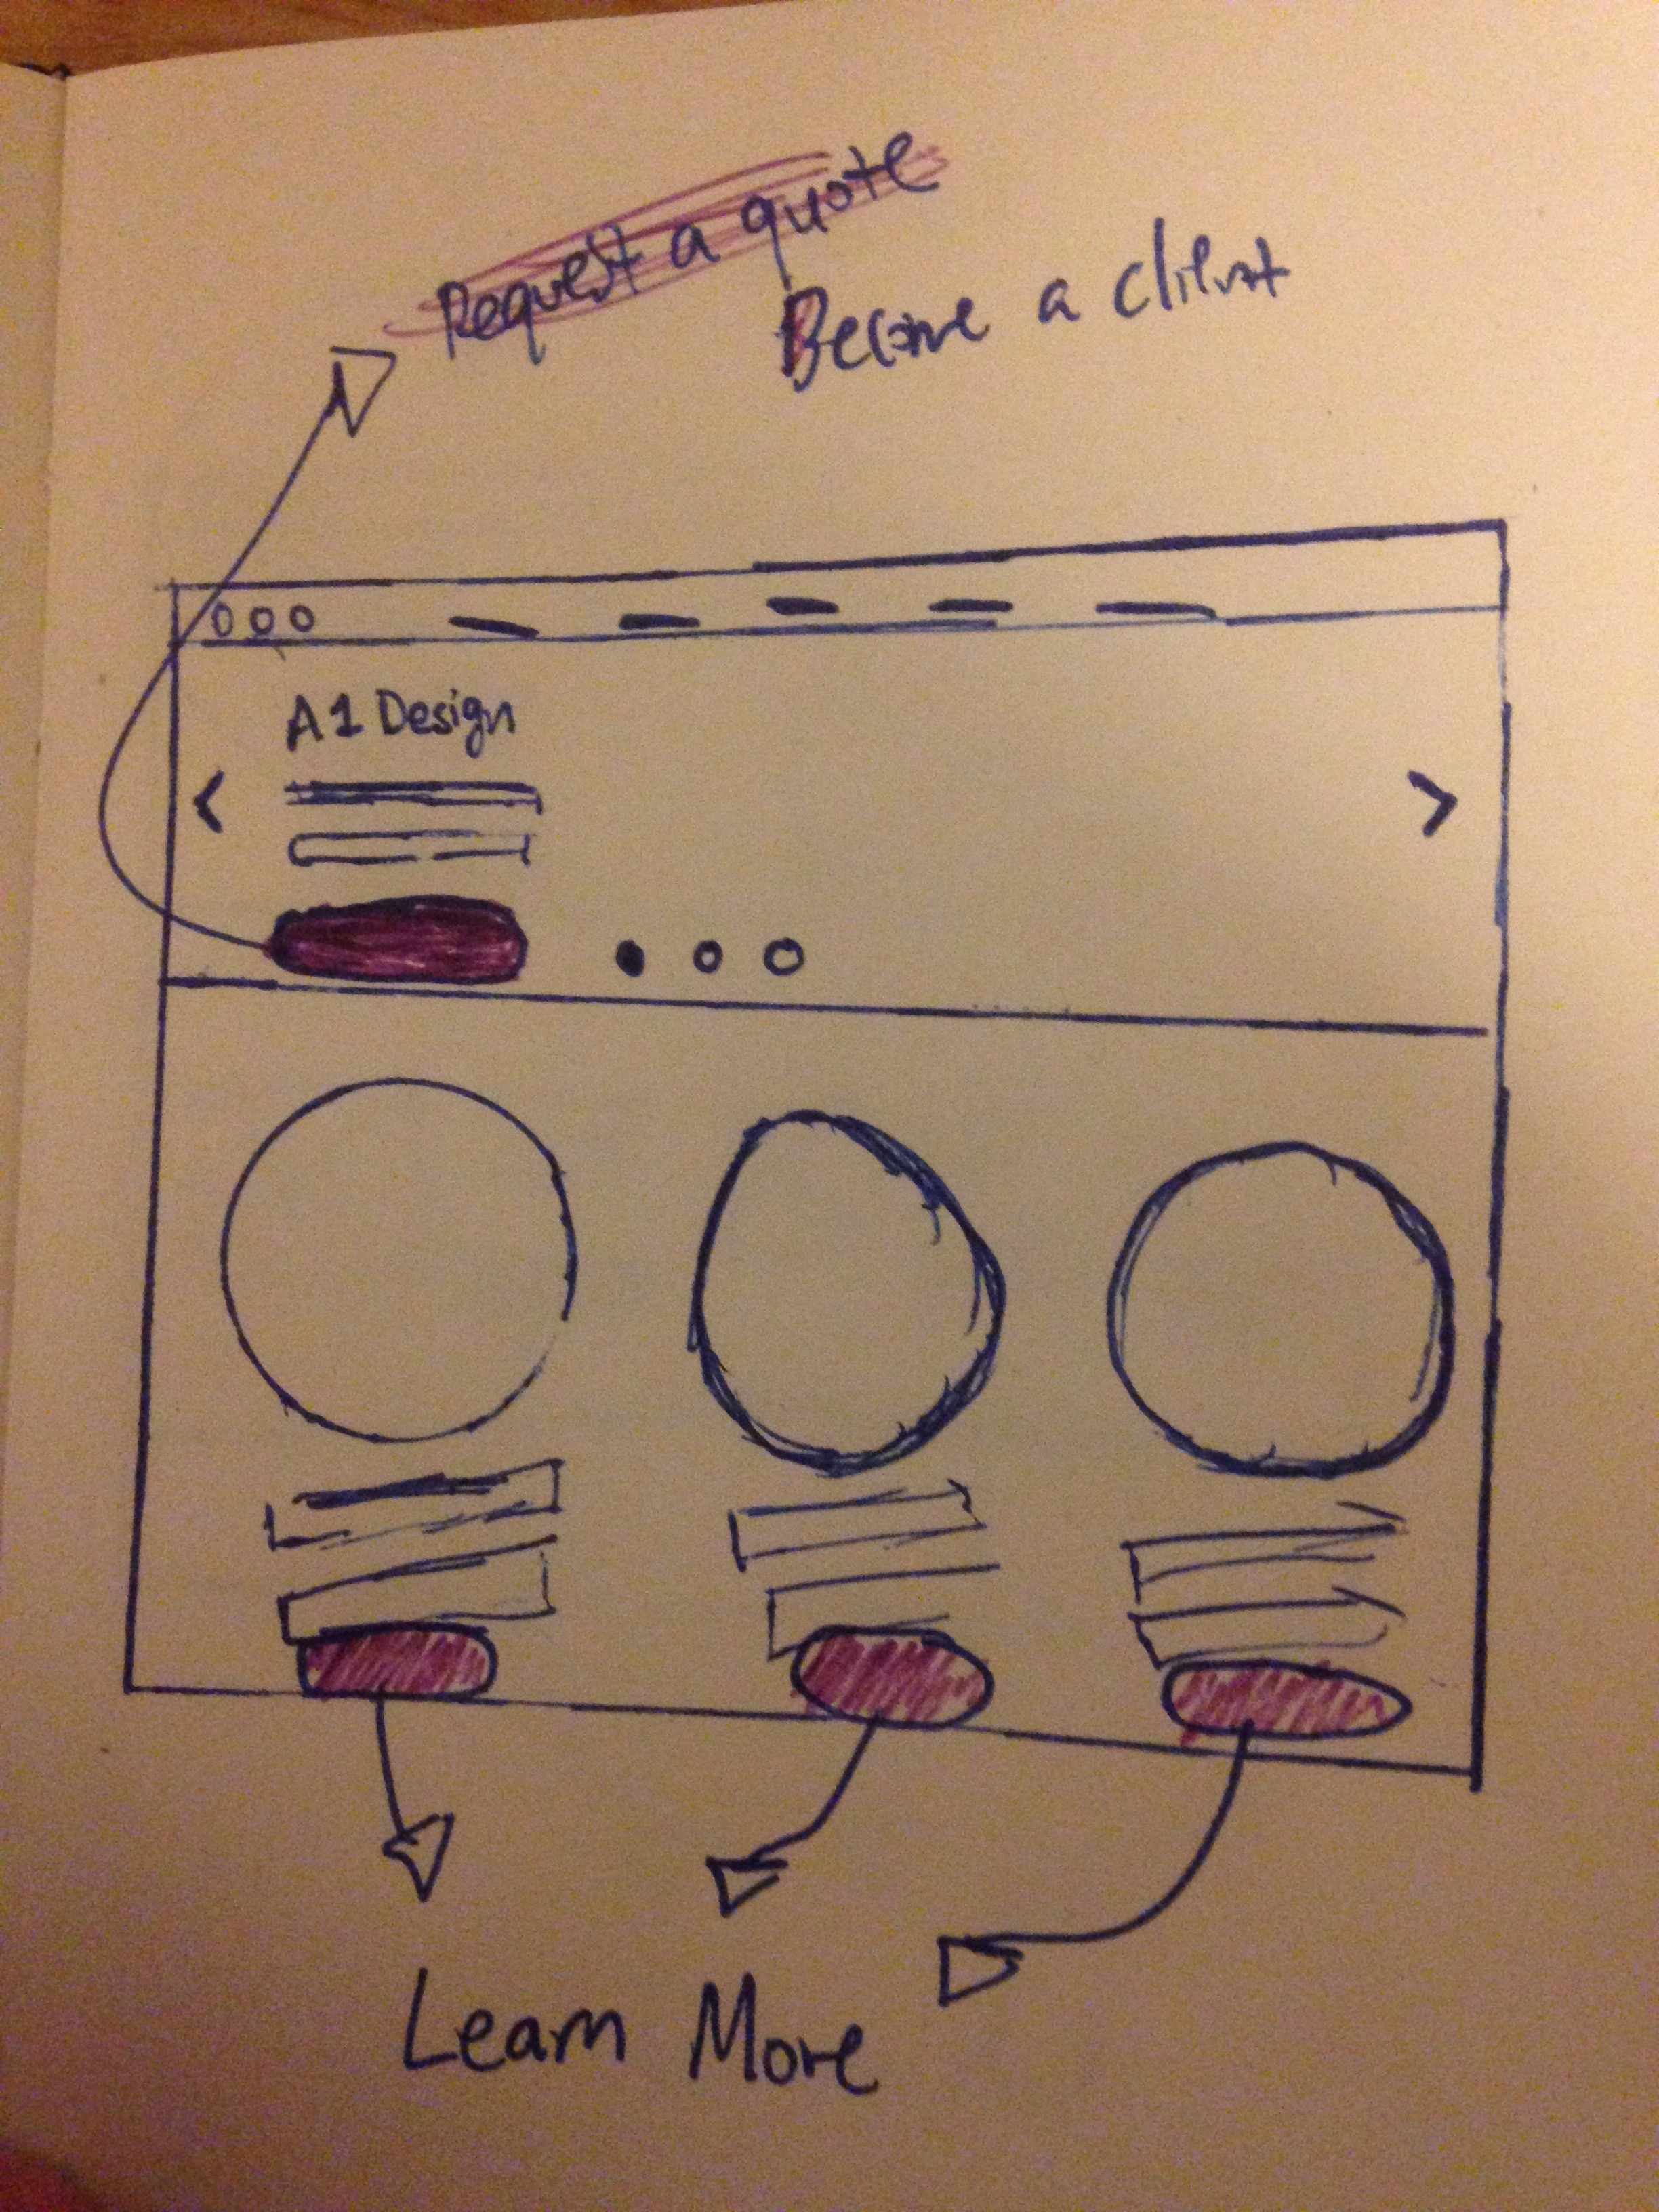 Request a quote
Become a client
A1 Design
Learn More